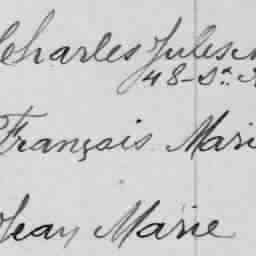 Charles Jules
François Mari
Jean Marie